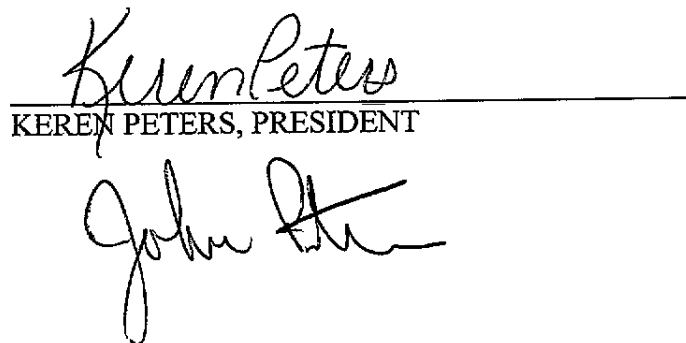 Keren Peters
KEREN PETERS, PRESIDENT
John